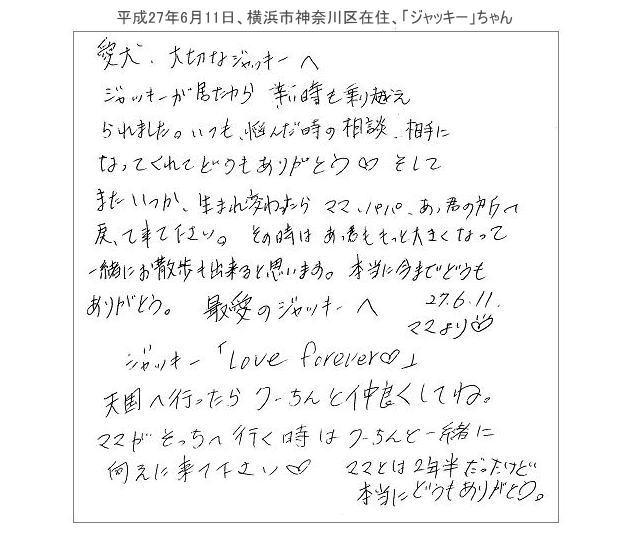 平成27年6月11日、横浜市神奈川区在住、「ジャッキー」ちゃん
愛犬、大切なジャッキーへ
ジャッキーが居たから 辛い時も乗り越え
られました。いつも、悩んだ時の相談、相手に
なってくれてどうもありがとう♡ そして
またいつか、生まれ変わったら ママ、パパ、あっ君の所へ
戻って来て下さい。 その時はあっ君ももっと大きくなって
一緒にお散歩も出来ると思います。本当に今までどうも
ありがとう。 最愛のジャッキーへ 27.6.11.
ママより♡
ジャッキー「Love forever♡」
天国へ行ったらクーちんと仲良くしてね。
ママがそっちへ行く時はクーちんと一緒に
向えに来て下さい♡ ママとは2年半だったけど
本当にどうもありがとう。